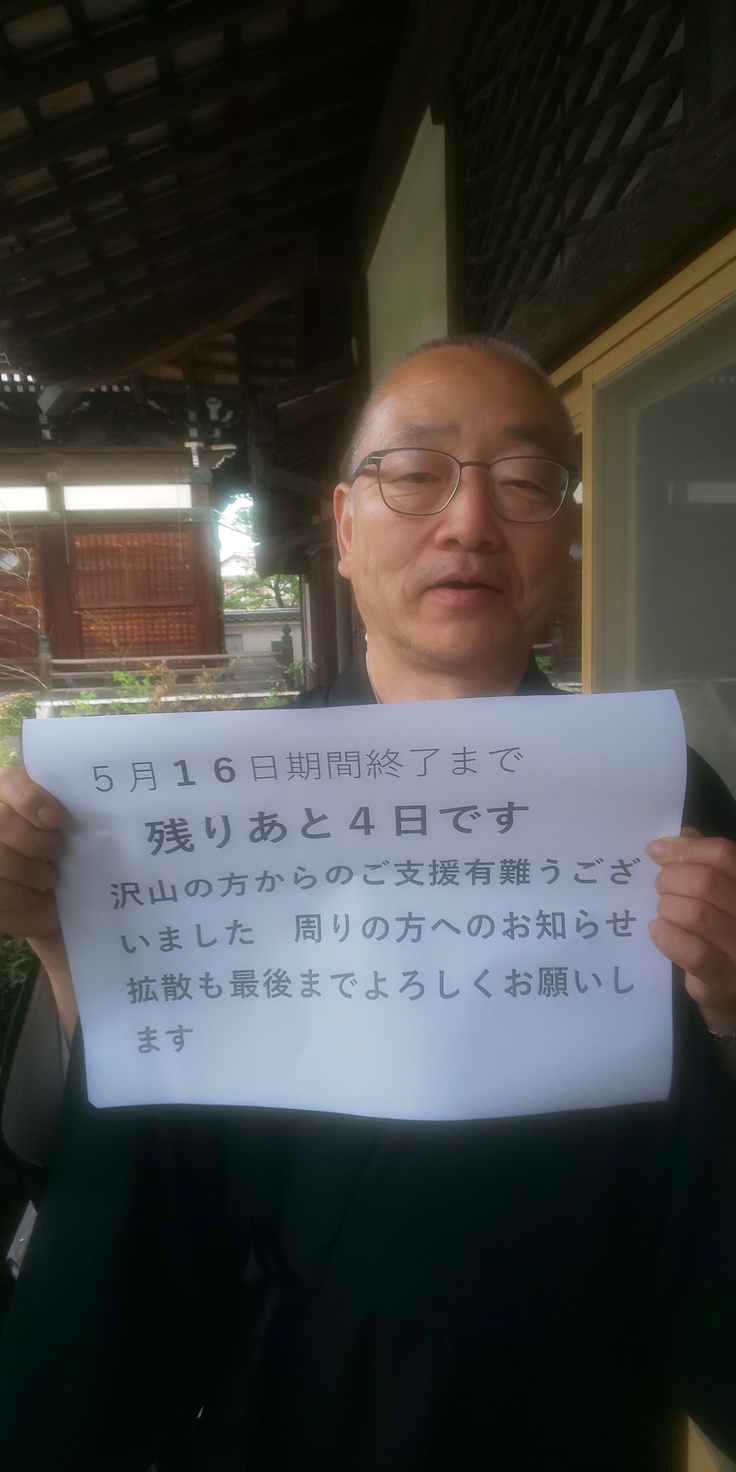 ５月１６日期間終了まで
残りあと４日です
沢山の方からのご支援有難うござ
いました　周りの方へのお知らせ
拡散も最後までよろしくお願いし
ます